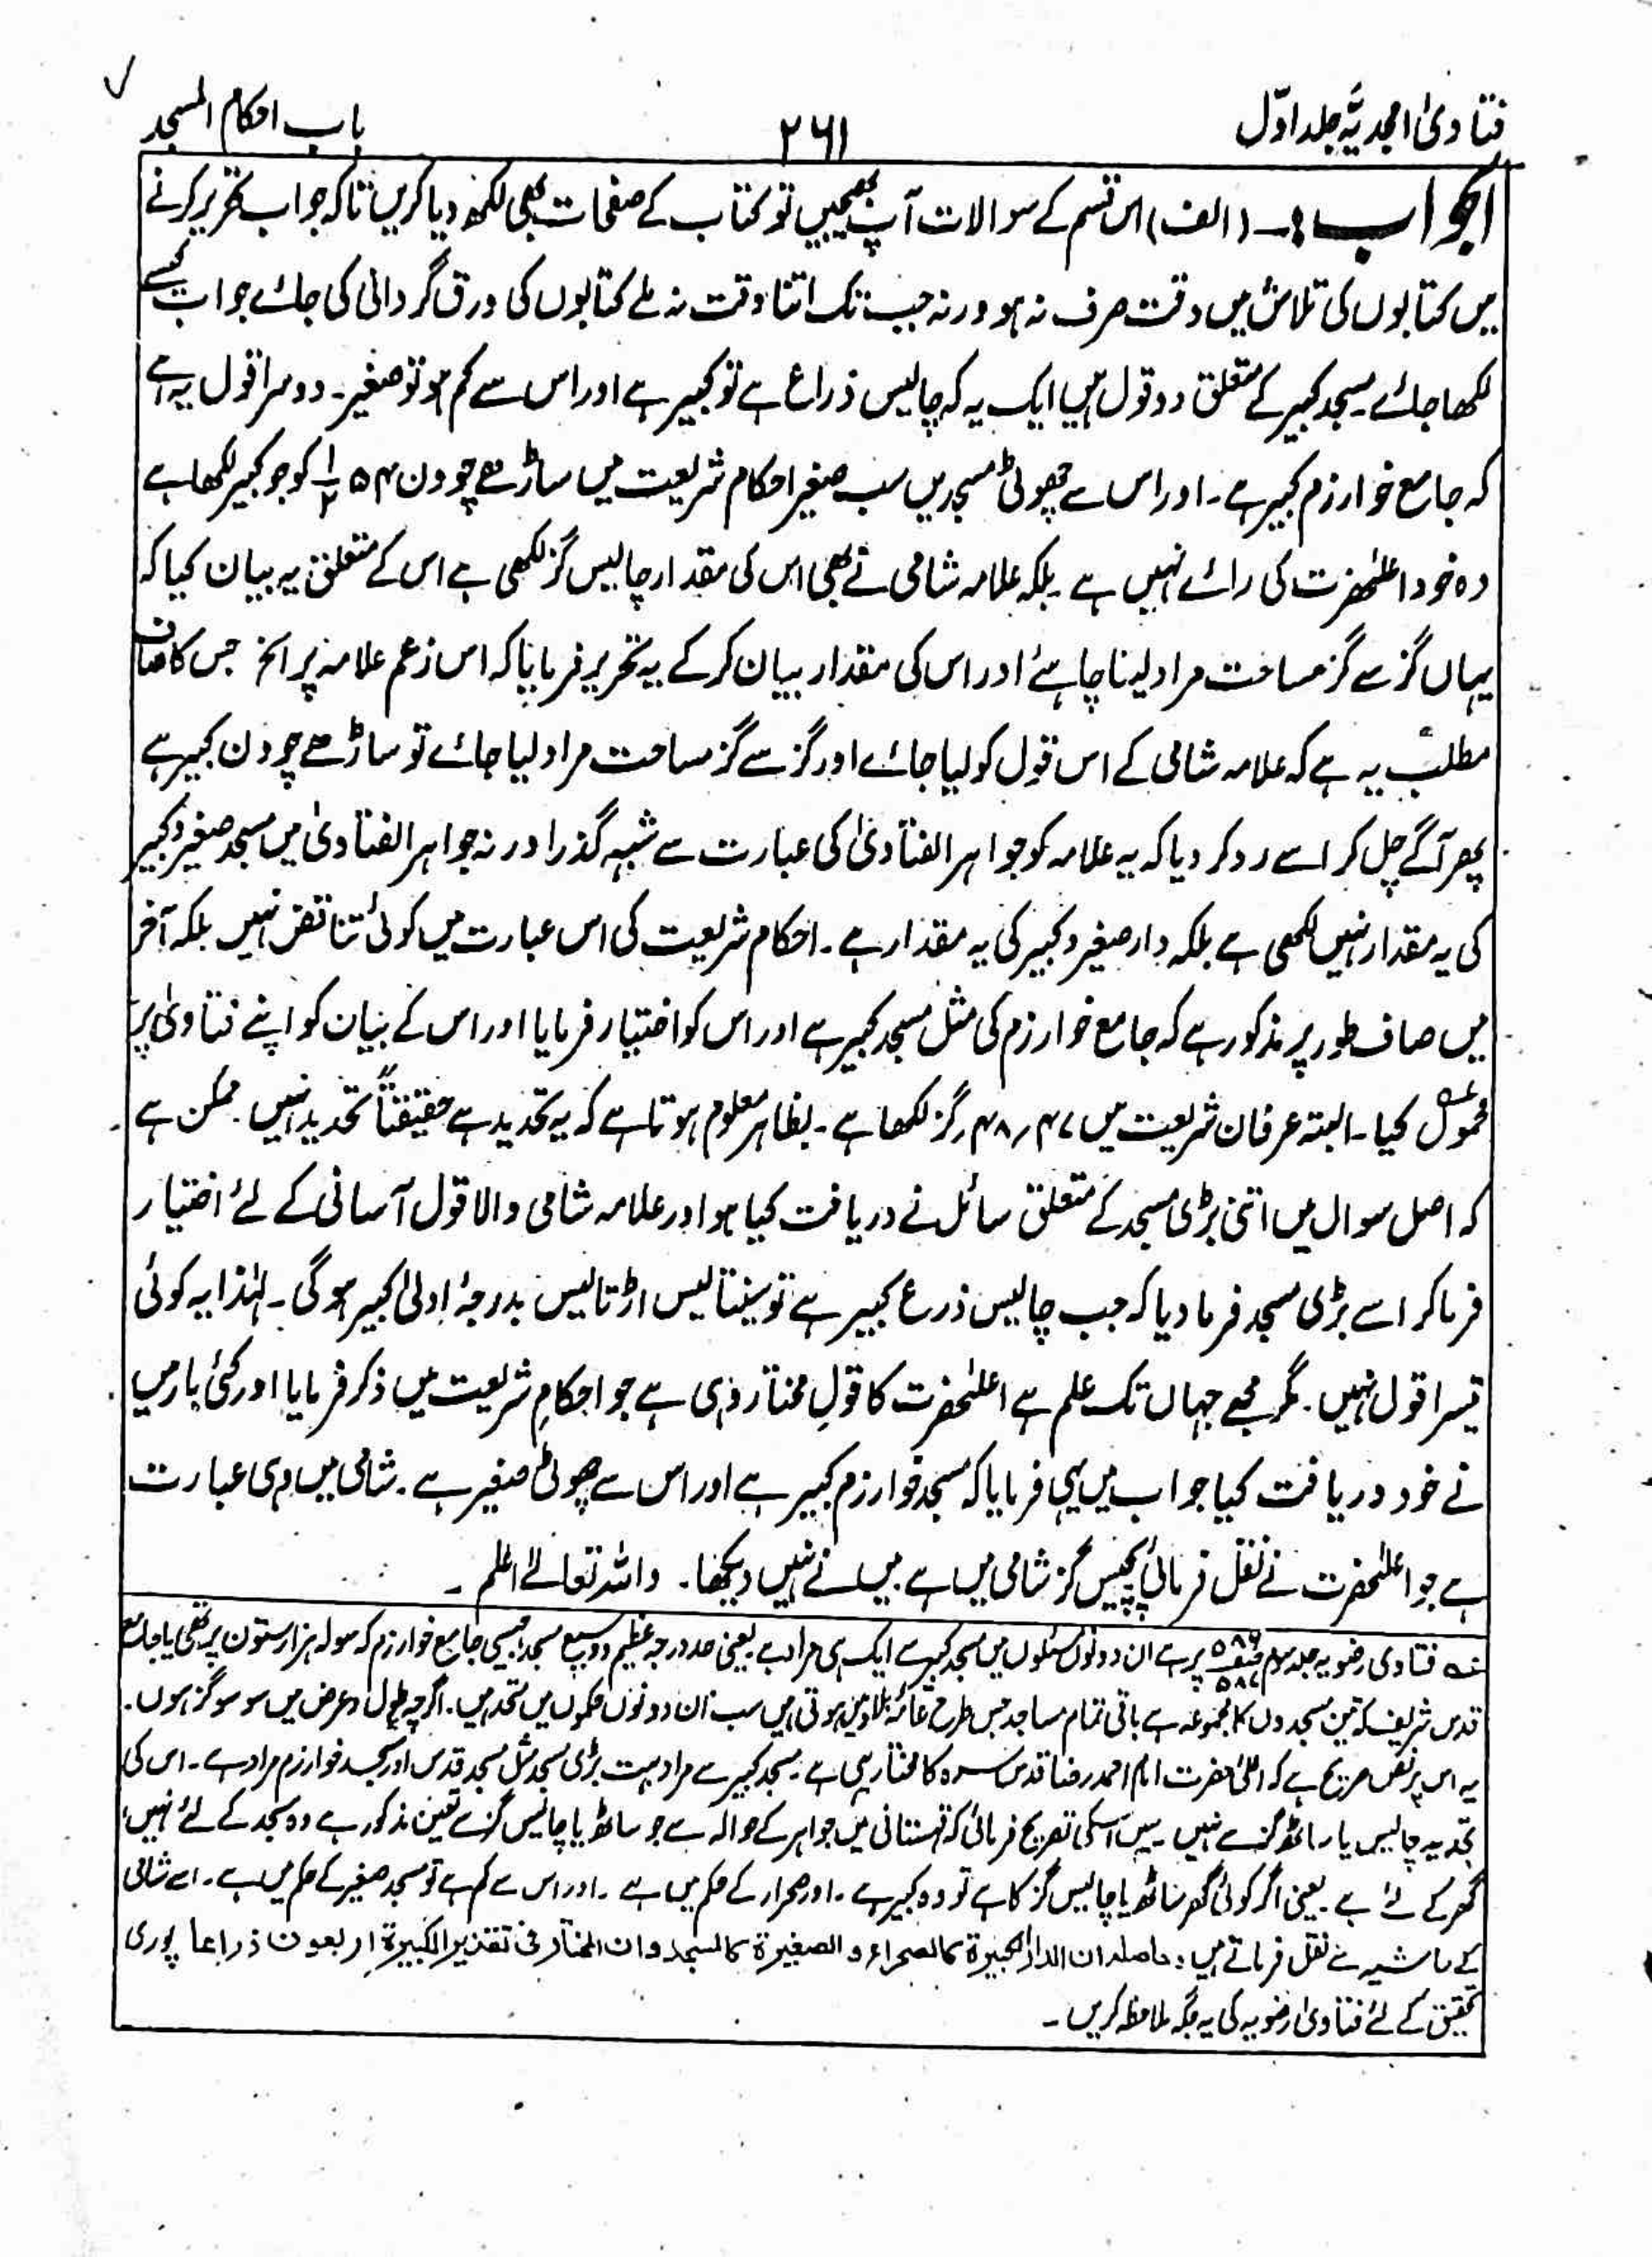 فتاویٰ امجدیہ جلد اوّل
۲۶۱
باب احکام المسجد
الجواب :- (الف) اس قسم کے سوالات آپ بھیجیں تو کتاب کے صفحات بھی لکھ دیا کریں تاکہ جواب تحریر کرنے
میں کتابوں کی تلاش میں وقت صرف نہ ہو ورنہ جب تک اتنا وقت نہ ملے کتابوں کی ورق گردانی کی جائے جواب کیسے
لکھا جائے۔ مسجد کبیر کے متعلق دو قول ہیں ایک یہ کہ چالیس ذراع ہے تو کبیر ہے اور اس سے کم ہو تو صغیر۔ دوسرا قول یہ ہے
کہ جامع خوارزم کبیر ہے۔ اور اس سے چھوٹی مسجدیں سب صغیر احکام شریعت میں ساڑھے چوون ۵۴ ۱/۲ کو جو کبیر لکھا ہے
وہ خود اعلیٰحضرت کی رائے نہیں ہے۔ بلکہ علامہ شامی نے بھی اس کی مقدار چالیس گز لکھی ہے اس کے متعلق یہ بیان کیا کہ
یہاں گز سے گز مساحت مراد لینا چاہئے اور اس کی مقدار بیان کر کے یہ تحریر فرمایا کہ اس زعم علامہ پر الخ جس کا صاف
مطلب یہ ہے کہ علامہ شامی کے اس قول کو لیا جائے اور گز سے گز مساحت مراد لیا جائے تو ساڑھے چوون کبیر ہے
پھر آگے چل کر اسے رد کر دیا کہ یہ علامہ کو جواہر الفتاویٰ کی عبارت سے شبہہ گذرا ورنہ جواہر الفتاویٰ میں مسجد صغیر و کبیر
کی یہ مقدار نہیں لکھی ہے بلکہ دار صغیر و کبیر کی یہ مقدار ہے۔ احکام شریعت کی اس عبارت میں کوئی تناقض نہیں بلکہ آخر
میں صاف طور پر مذکور ہے کہ جامع خوارزم کی مثل مسجد کبیر ہے اور اس کو اختیار فرمایا اور اس کے بیان کو اپنے فتاویٰ پر
محمول کیا۔ البتہ عرفان شریعت میں ۴۷، ۴۸، گز لکھا ہے۔ بظاہر معلوم ہوتا ہے کہ یہ تحدید ہے حقیقتاً تحدید نہیں۔ ممکن ہے
کہ اصل سوال میں اتنی بڑی مسجد کے متعلق سائل نے دریافت کیا ہو اور علامہ شامی والا قول آسانی کے لئے اختیار
فرما کر اسے بڑی مسجد فرما دیا کہ جب چالیس ذرع کبیر ہے تو سینتالیس اڑتالیس بدرجۂ اولیٰ کبیر ہوگی۔ لہٰذا یہ کوئی
تیسرا قول نہیں۔ مگر مجھے جہاں تک علم ہے اعلیٰحضرت کا قولِ مختار وہی ہے جو احکامِ شریعت میں ذکر فرمایا اور کئی بار میں
نے خود دریافت کیا جواب میں یہی فرمایا کہ مسجد خوارزم کبیر ہے اور اس سے چھوٹی صغیر ہے۔ شامی میں وہی عبارت
ہے جو اعلیٰحضرت نے نقل فرمائی پچیس گز شامی میں ہے میں نے نہیں دیکھا۔ واللہ تعالےٰ اعلم۔
فتاوی رضویہ جلد سوم صفحہ ۵۸۶ پر ہے ان دونوں مسئلوں میں مسجد کبیر سے ایک ہی مراد ہے یعنی حد درجہ عظیم و وسیع مسجد جیسی جامع خوارزم کہ سولہ ہزار ستون پر تھی یا جامع
قدس شریف کہ تین مسجدوں کا مجموعہ ہے باقی تمام مساجد جس طرح عامۂ بلاد میں ہوتی ہیں سب ان دونوں حکموں میں متحد ہیں۔ اگرچہ طول و عرض میں سو سو گز ہوں۔
یہ اس پر نص صریح ہے کہ اعلیٰ حضرت امام احمد رضا قدس سرہ کا مختار یہی ہے۔ مسجد کبیر سے مراد بہت بڑی مسجد مثل مسجد قدس اور مسجد خوارزم مراد ہے۔ اس کی
تحدید چالیس یا ساٹھ گز سے نہیں۔ یہیں اسکی تصریح فرمائی کہ قہستانی میں جواہر کے حوالہ سے جو ساٹھ یا چالیس گز سے تعین مذکور ہے وہ مسجد کے لئے نہیں،
گھر کے لئے ہے یعنی اگر کوئی گھر ساٹھ یا چالیس گز کا ہے تو وہ کبیر ہے۔ اور صحراء کے حکم میں ہے۔ اور اس سے کم ہے تو مسجد صغیر کے حکم میں ہے۔ اسے شامی
کے حاشیہ سے نقل فرماتے ہیں: حاصلہ ان الدار الکبیرۃ کالصحراء و الصغیرۃ کالمسجد وان المختار فی تقدیر الکبیرۃ اربعون ذراعا پوری
تحقیق کے لئے فتاویٰ رضویہ کی یہ جگہ ملاحظہ کریں۔